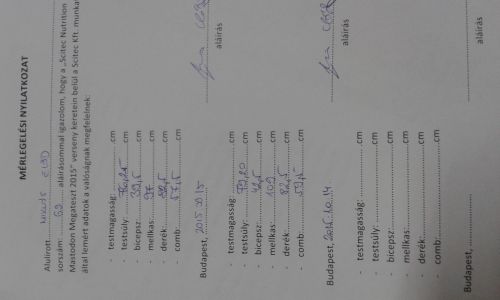 MÉRLEGELÉSI NYILATKOZAT
Alulírott
sorszám: 69 aláírásommal igazolom, hogy a „Scitec Nutrition
Mastodon Megateszt 2015" verseny keretein belül a Scitec Kft. munka
által lemért adatok a valóságnak megfelelnek:
- testmagasság: cm
- testsúly: cm
- bicepsz: 39,5 cm
- mellkas: 97 cm
- derék: cm
- comb: 57,5 cm
Budapest, 2015
aláírás
- testmagasság: cm
- testsúly: 79,20 cm
- bicepsz: 42,5 cm
- mellkas: 109 cm
- derék: 82,5 cm
- comb: 59,5 cm
Budapest, 2015.10.14
aláírás
- testmagasság: cm
- testsúly: cm
- bicepsz: cm
- mellkas: cm
- derék: cm
- comb: cm
Budapest,
aláírás